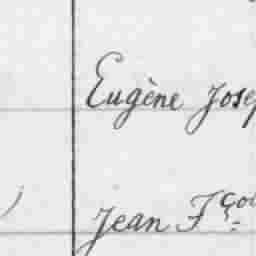 Eugène Josep
Jean Fçoi